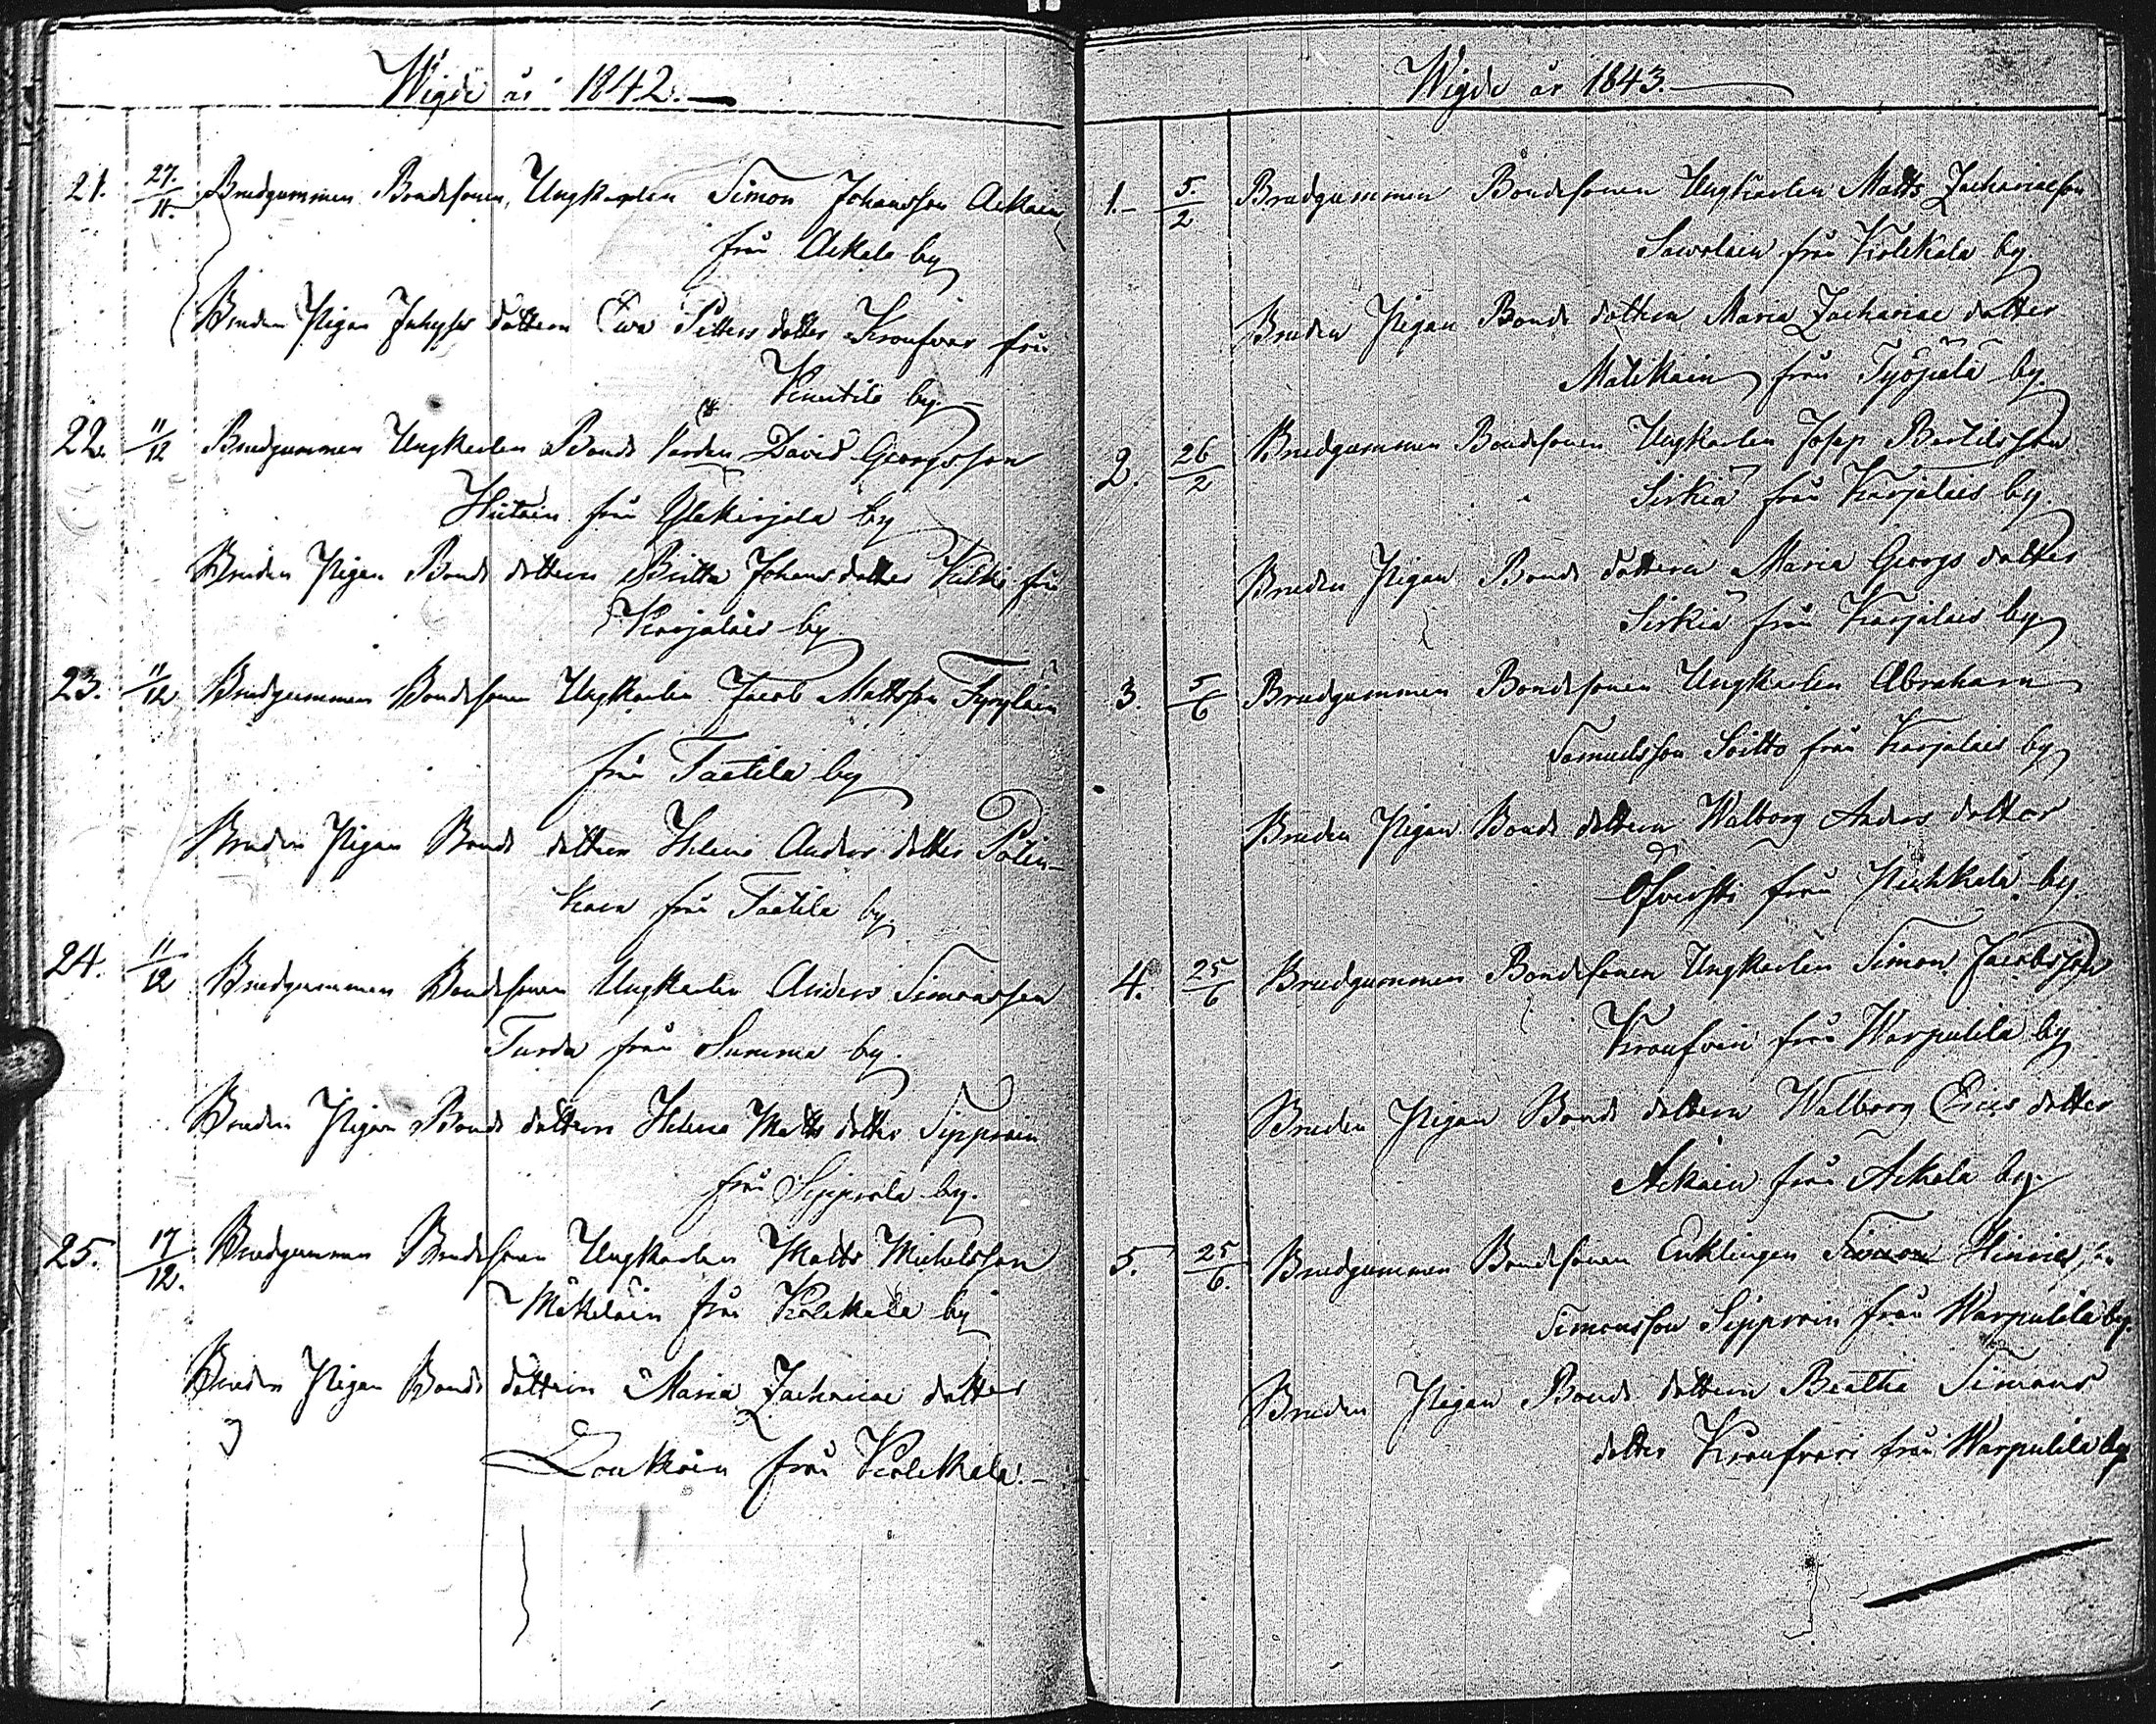 Wigde år 1842.
21. 27/11. Brudgummen Bondesonen, Ungkarlen Simon Johansson Ackain
från Ackala by
Bruden Pigan dottern Ewa Petters dotter Kronfvar från
Kuutila by.
22. 11/12 Brudgummen Ungkarlen Bonde David Georgsson
Hietain från Ylekirjola by
Bruden Pigan Bonde dottern Britta Johans dotter från
Karjalais by
23. 11/12 Brudgummen Bondesonen Ungkarlen Jacob Mattsson Tyrylain
från Taatila by
Bruden Pigan Bonde dottern Helena Anders dotter Pölin-
kain från Taatila by.
24. 11/12 Brudgummen Bondesonen Ungkarlen Anders Simonsson
Turda från Summa by.
Bruden Pigan Bonde dottern Helena Matts dotter Sipprain
från Sipprola by.
25. 17/12. Brudgummen Bondesonen Ungkarlen Matts Michelsson
Mäkeläin från Kolckala by
Bruden Pigan Bonde dottern Maria Zachariae dotter
Loukkain från Kolckala.
Wigde år 1843.
1. 5./2 Brudgummen Bondesonen Ungkarlen Matts Zachariaeson
Sawolain från Kolckala by.
Bruden Pigan Bonde dottern Maria Zachariae dotter
Matikain från Työpälä by.
2. 26/2 Brudgummen Bondesonen Ungkarlen Josep Bertilsson
Sirkiä från Karjalais by.
Bruden Pigan Bonde dottern Maria Georgs dotter
Sirkiä från Karjalais by
3. 5/6 Brudgummen Bondesonen Ungkarlen Abraham
Samuelsson Soitto från Karjalais by
Bruden Pigan Bonde dottern Walborg Anders dotter
från by.
4. 25/6 Brudgummen Bondesonen Ungkarlen Simon Jacobsson
Kronfvari från Warpulila by
Bruden Pigan Bonde dottern Walborg Erics dotter
Ackain från Ackala by.
5. 25/6. Brudgummen Bondesonen Enklingen Simon Hinric
Simonsson Sipprain från Warpulila by.
Bruden Pigan Bonde dottern Beatha Simons
dotter Kronfvari från Warpulila by